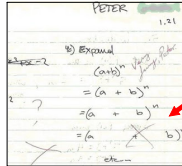 PETER
1.21
b) Expand
(a+b)ⁿ Very funny, Peter.
= (a + b)ⁿ
2
= (a + b)ⁿ
= (a + b)
etc...